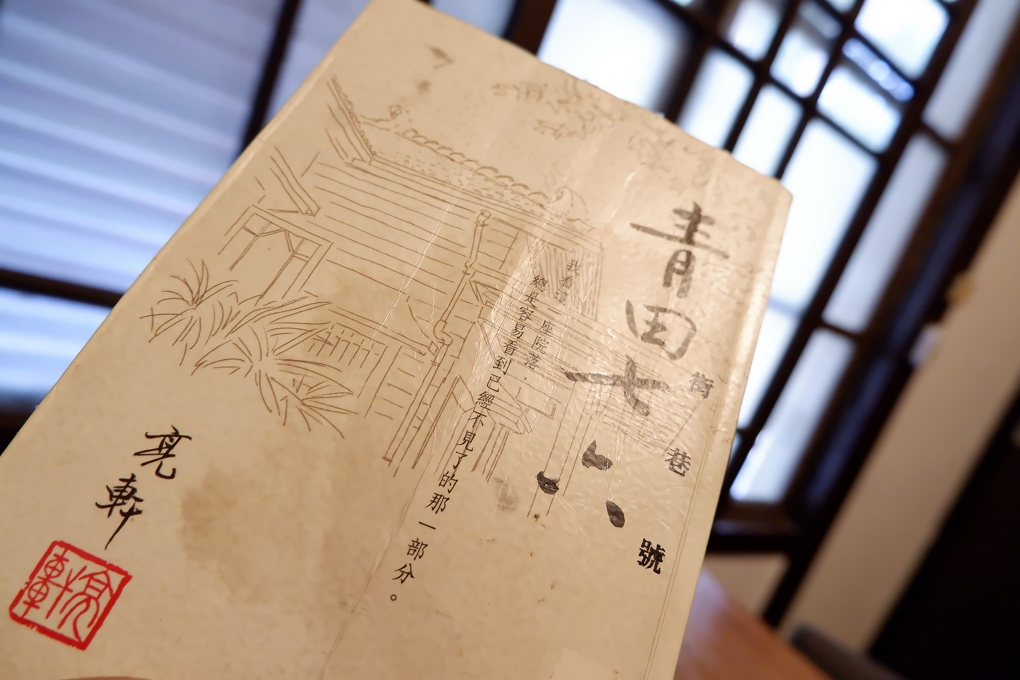 青田街七巷六號
我看這一座院落，
總是容易看到已經不見了的那一部分。
亮軒
亮軒